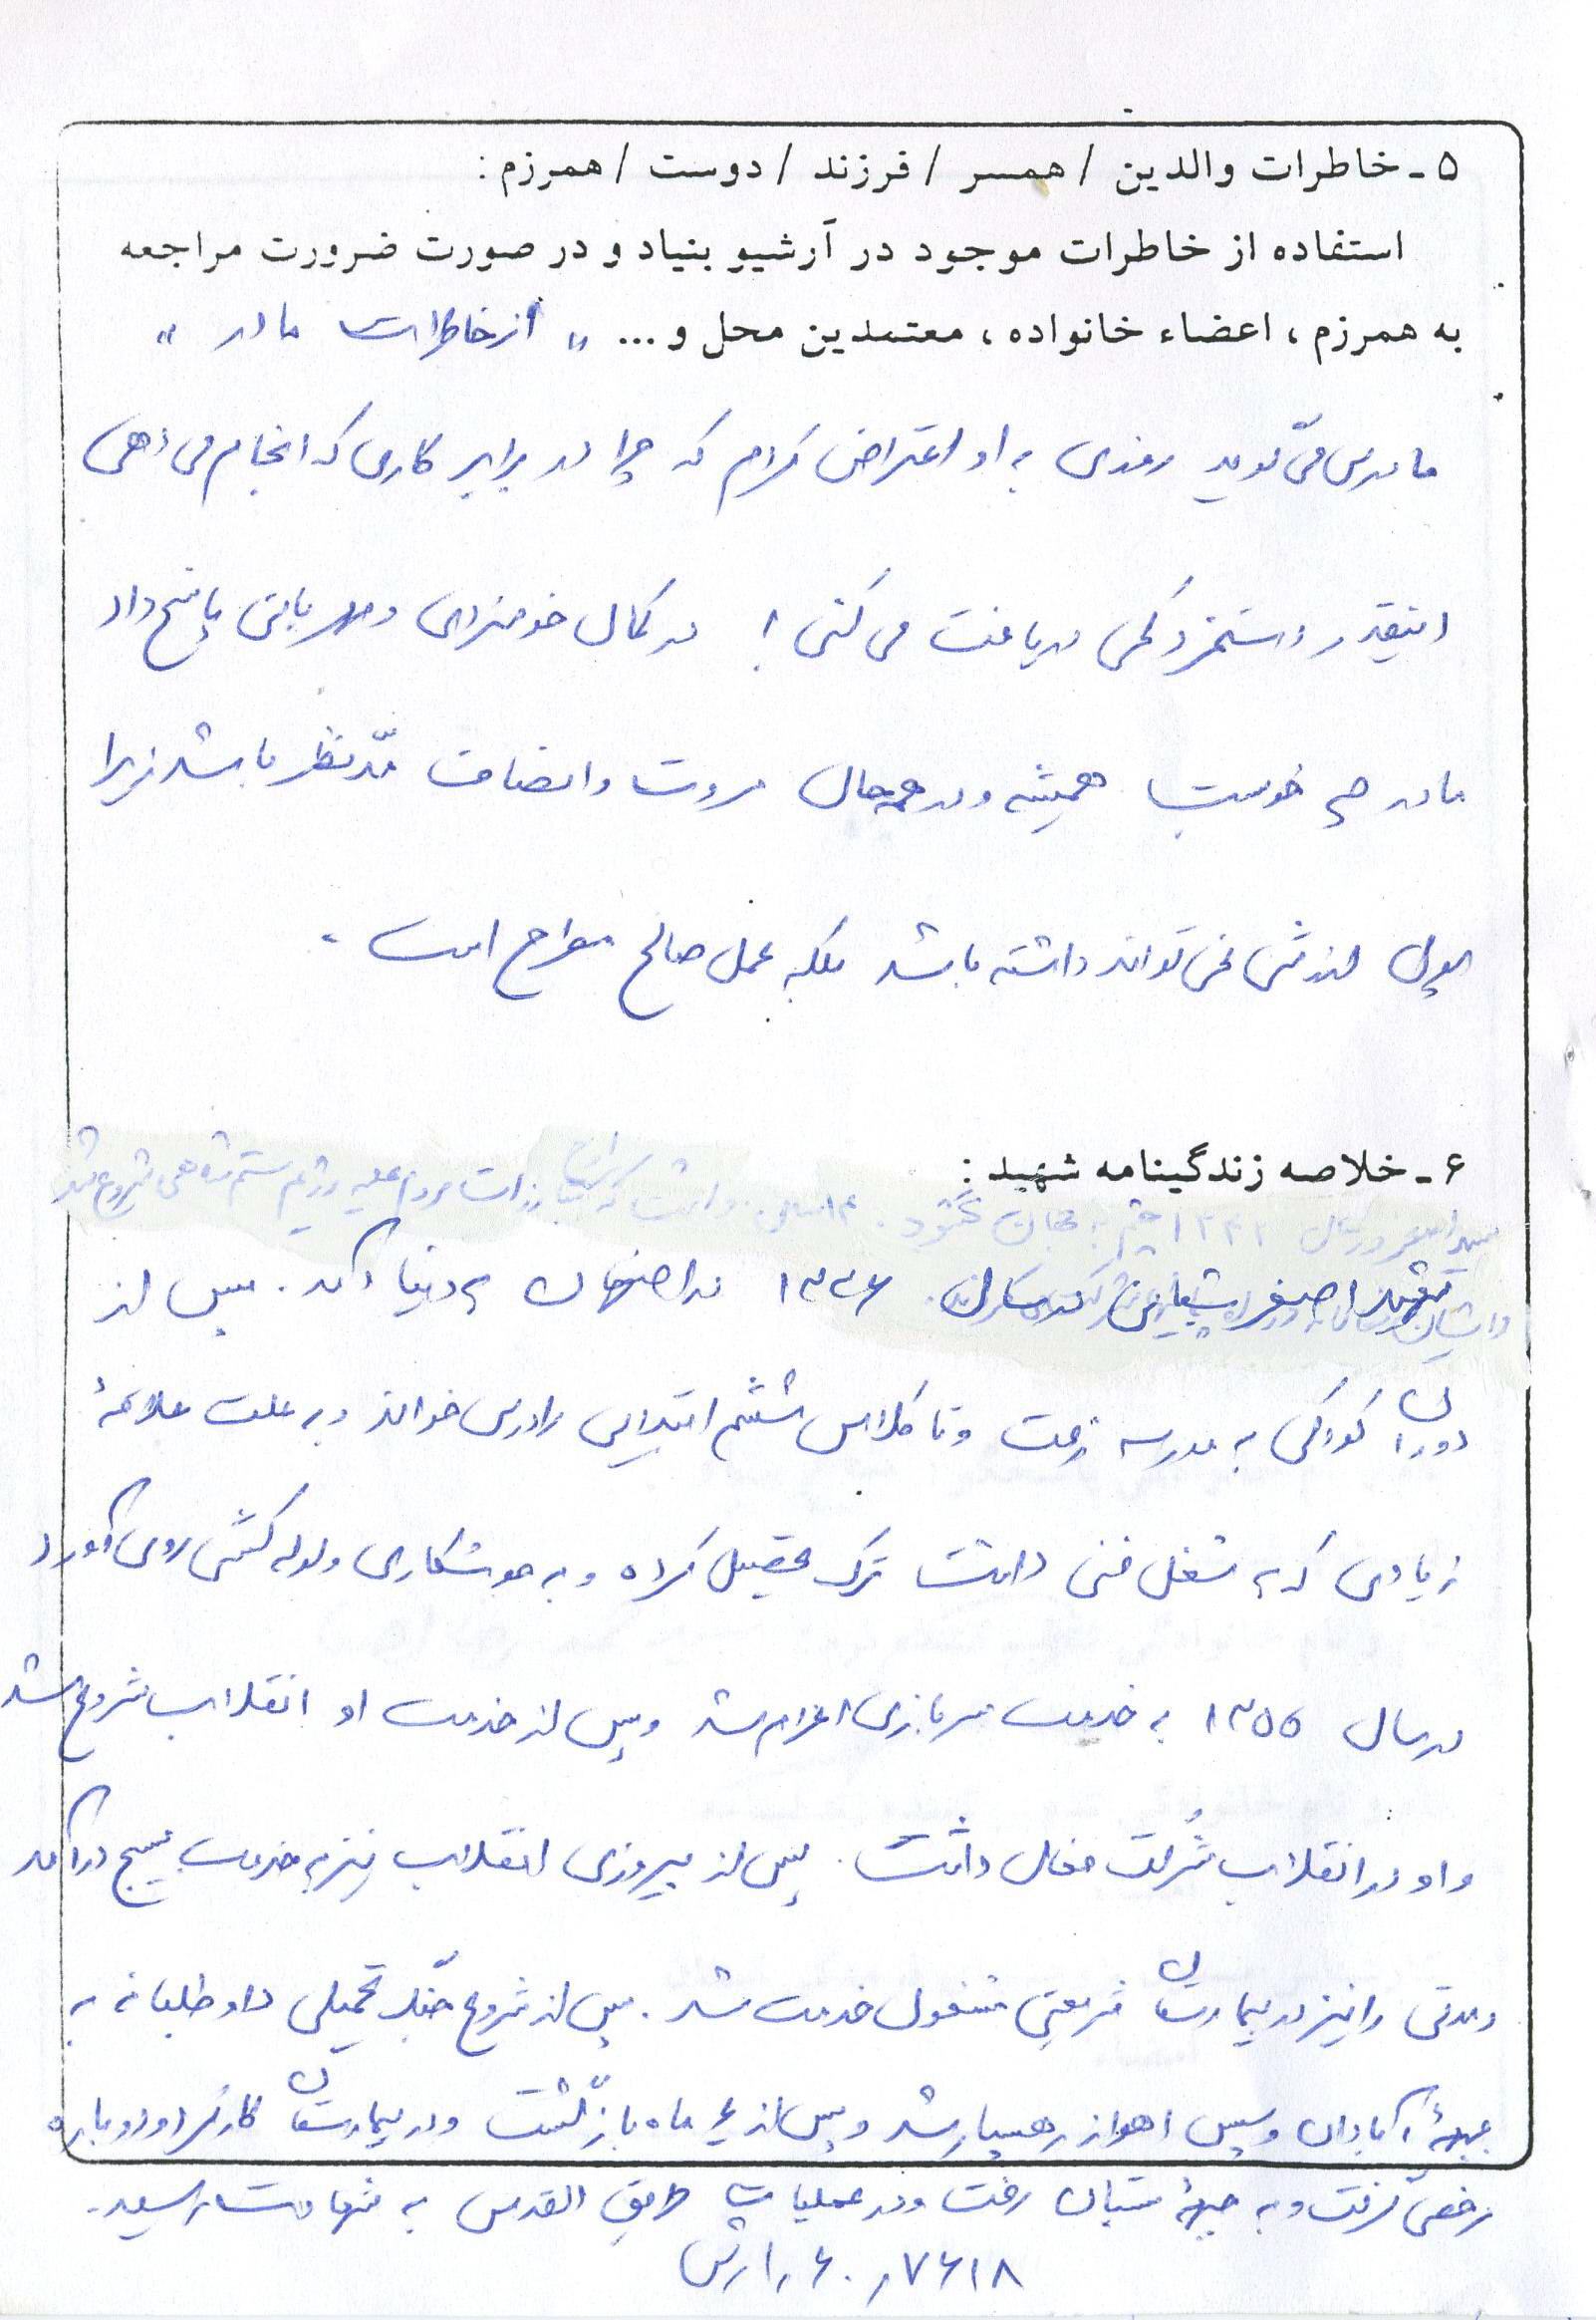 ۵ـ خاطرات والدین / همسر / فرزند / دوست / همرزم :
استفاده از خاطرات موجود در آرشیو بنیاد و در صورت ضرورت مراجعه
به همرزم ، اعضاء خانواده ، معتمدین محل و ... " از خاطرات مادر "
مادرش می گوید روزی به او اعتراض کردم که چرا در برابر کاری که انجام می دهی
اینقدر دستمزد کمی دریافت می کنی ! در کمال خونسردی و مهربانی پاسخ داد
مادر چه خوبست همیشه و در همه حال مروت و انصاف مدّ نظر باشد زیرا
پول ارزشی نمی تواند داشته باشد بلکه عمل صالح مطرح است .
۶ـ خلاصه زندگینامه شهید :
شهید اصغر در سال ۱۳۳۶ در اصفهان به دنیا آمد . پس از
دوران کودکی به مدرسه رفت و تا کلاس ششم ابتدایی را درس خواند و به علت علاقۀ
زیادی که به شغل فنی داشت ترک تحصیل کرده و به جوشکاری و لوله کشی روی آورد
در سال ۱۳۵۵ به خدمت سربازی اعزام شد و پس از خدمت او انقلاب شروع شد
و او در انقلاب شرکت فعال داشت . پس از پیروزی انقلاب نیز به خدمت بسیج درآمد
و مدتی را نیز در بیمارستان شریعتی مشغول خدمت شد . پس از شروع جنگ تحمیلی داوطلبانه به
جبهۀ آبادان و سپس اهواز رهسپار شد و پس از ۶ ماه بازگشت و در بیمارستان کار کرد و دوباره
مرخصی گرفت و به جبهۀ بستان رفت و در عملیات طریق القدس به شهادت رسید .